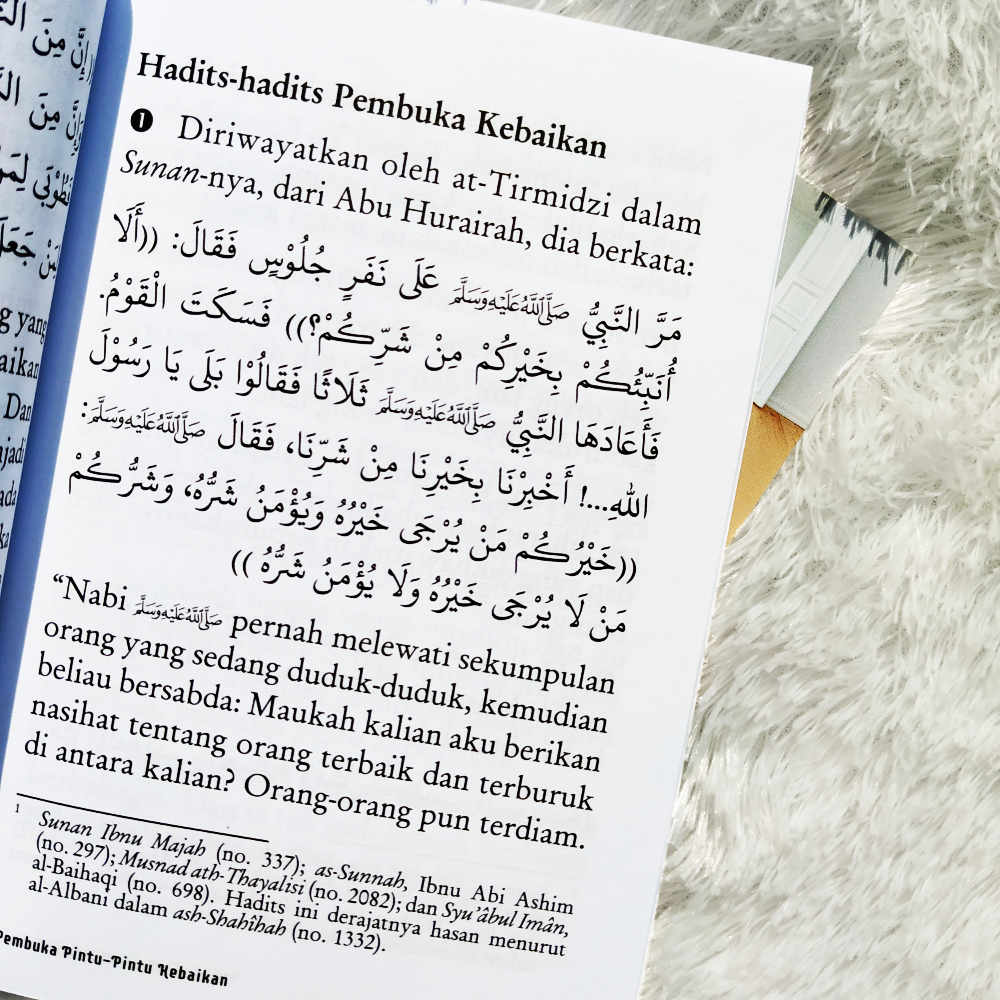 إِنَّ مِنَ
وَإِنَّ مِنَ
فَطُوْبَى
جَعَلَ
yang
Hadits-hadits Pembuka Kebaikan
1 Diriwayatkan oleh at-Tirmidzi dalam
Sunan-nya, dari Abu Hurairah, dia berkata:
مَرَّ النَّبِيُّ ﷺ عَلَى نَفَرٍ جُلُوْسٍ فَقَالَ: ((أَلَا
أُنَبِّئُكُمْ بِخَيْرِكُمْ مِنْ شَرِّكُمْ؟)) فَسَكَتَ الْقَوْمُ.
فَأَعَادَهَا النَّبِيُّ ﷺ ثَلَاثًا فَقَالُوْا بَلَى يَا رَسُوْلَ
اللهِ...! أَخْبِرْنَا بِخَيْرِنَا مِنْ شَرِّنَا، فَقَالَ ﷺ:
((خَيْرُكُمْ مَنْ يُرْجَى خَيْرُهُ وَيُؤْمَنُ شَرُّهُ، وَشَرُّكُمْ
مَنْ لَا يُرْجَى خَيْرُهُ وَلَا يُؤْمَنُ شَرُّهُ ))
“Nabi ﷺ pernah melewati sekumpulan
orang yang sedang duduk-duduk, kemudian
beliau bersabda: Maukah kalian aku berikan
nasihat tentang orang terbaik dan terburuk
di antara kalian? Orang-orang pun terdiam.
1 Sunan Ibnu Majah (no. 337); as-Sunnah, Ibnu Abi Ashim
(no. 297); Musnad ath-Thayalisi (no. 2082); dan Syu’âbul Imân,
al-Baihaqi (no. 698). Hadits ini derajatnya hasan menurut
al-Albani dalam ash-Shahîhah (no. 1332).
Pembuka Pintu-Pintu Kebaikan